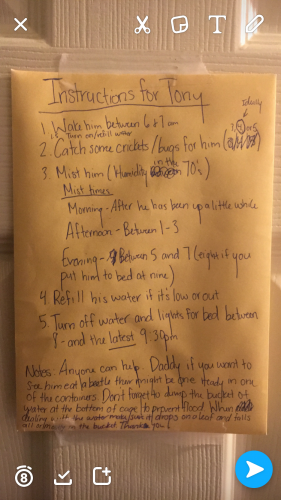 Instructions for Tony
Ideally
1. Wake him between 6 & 7 am
1.5 Turn on/refill water
7, 5 or 5
2. Catch some crickets/bugs for him
3 Mist him (Humidity in the 70's)
Mist times
Morning - After he has been up a little while
Afternoon - Between 1-3
Evening - Between 5 and 7 (eight if you
put him to bed at nine)
4. Refill his water if it's low or out
5. Turn off water and lights for bed between
8 - and the latest 9:30pm
Notes: Anyone can help. Daddy if you want to
see him eat a beetle there might be one ready in one
of the containers. Don't forget to dump the bucket of
water at the bottom of cage to prevent flood. When
dealing with the water make sure it drops on a leaf and falls
in the bucket Thank you!
8
T